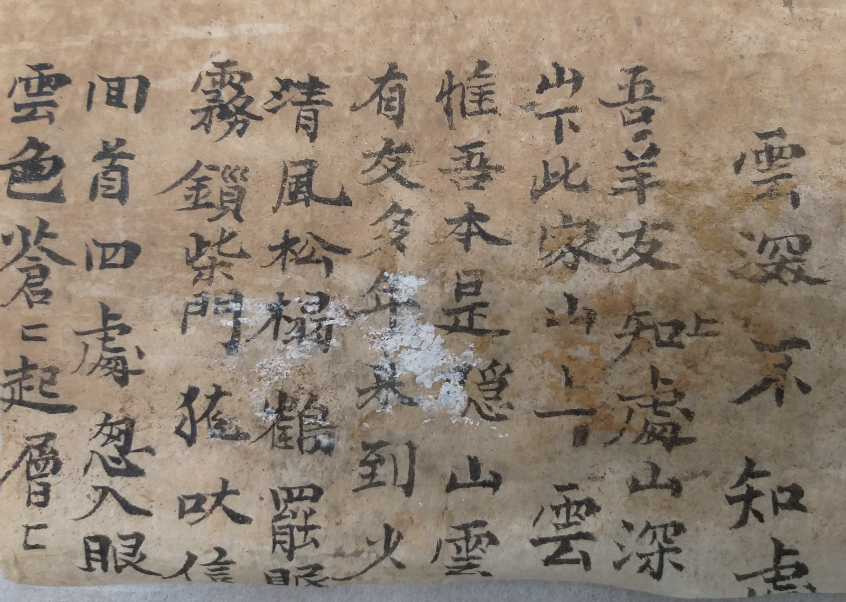 雲深不知處
吾羊友知處山深
山下此家山上下雲
惟吾本是隱山雲
有友多年来到火
清風松榻鶴罷眠
霧鎖柴門狵吠信
回首四處忽入眼
雲色蒼〻起層〻